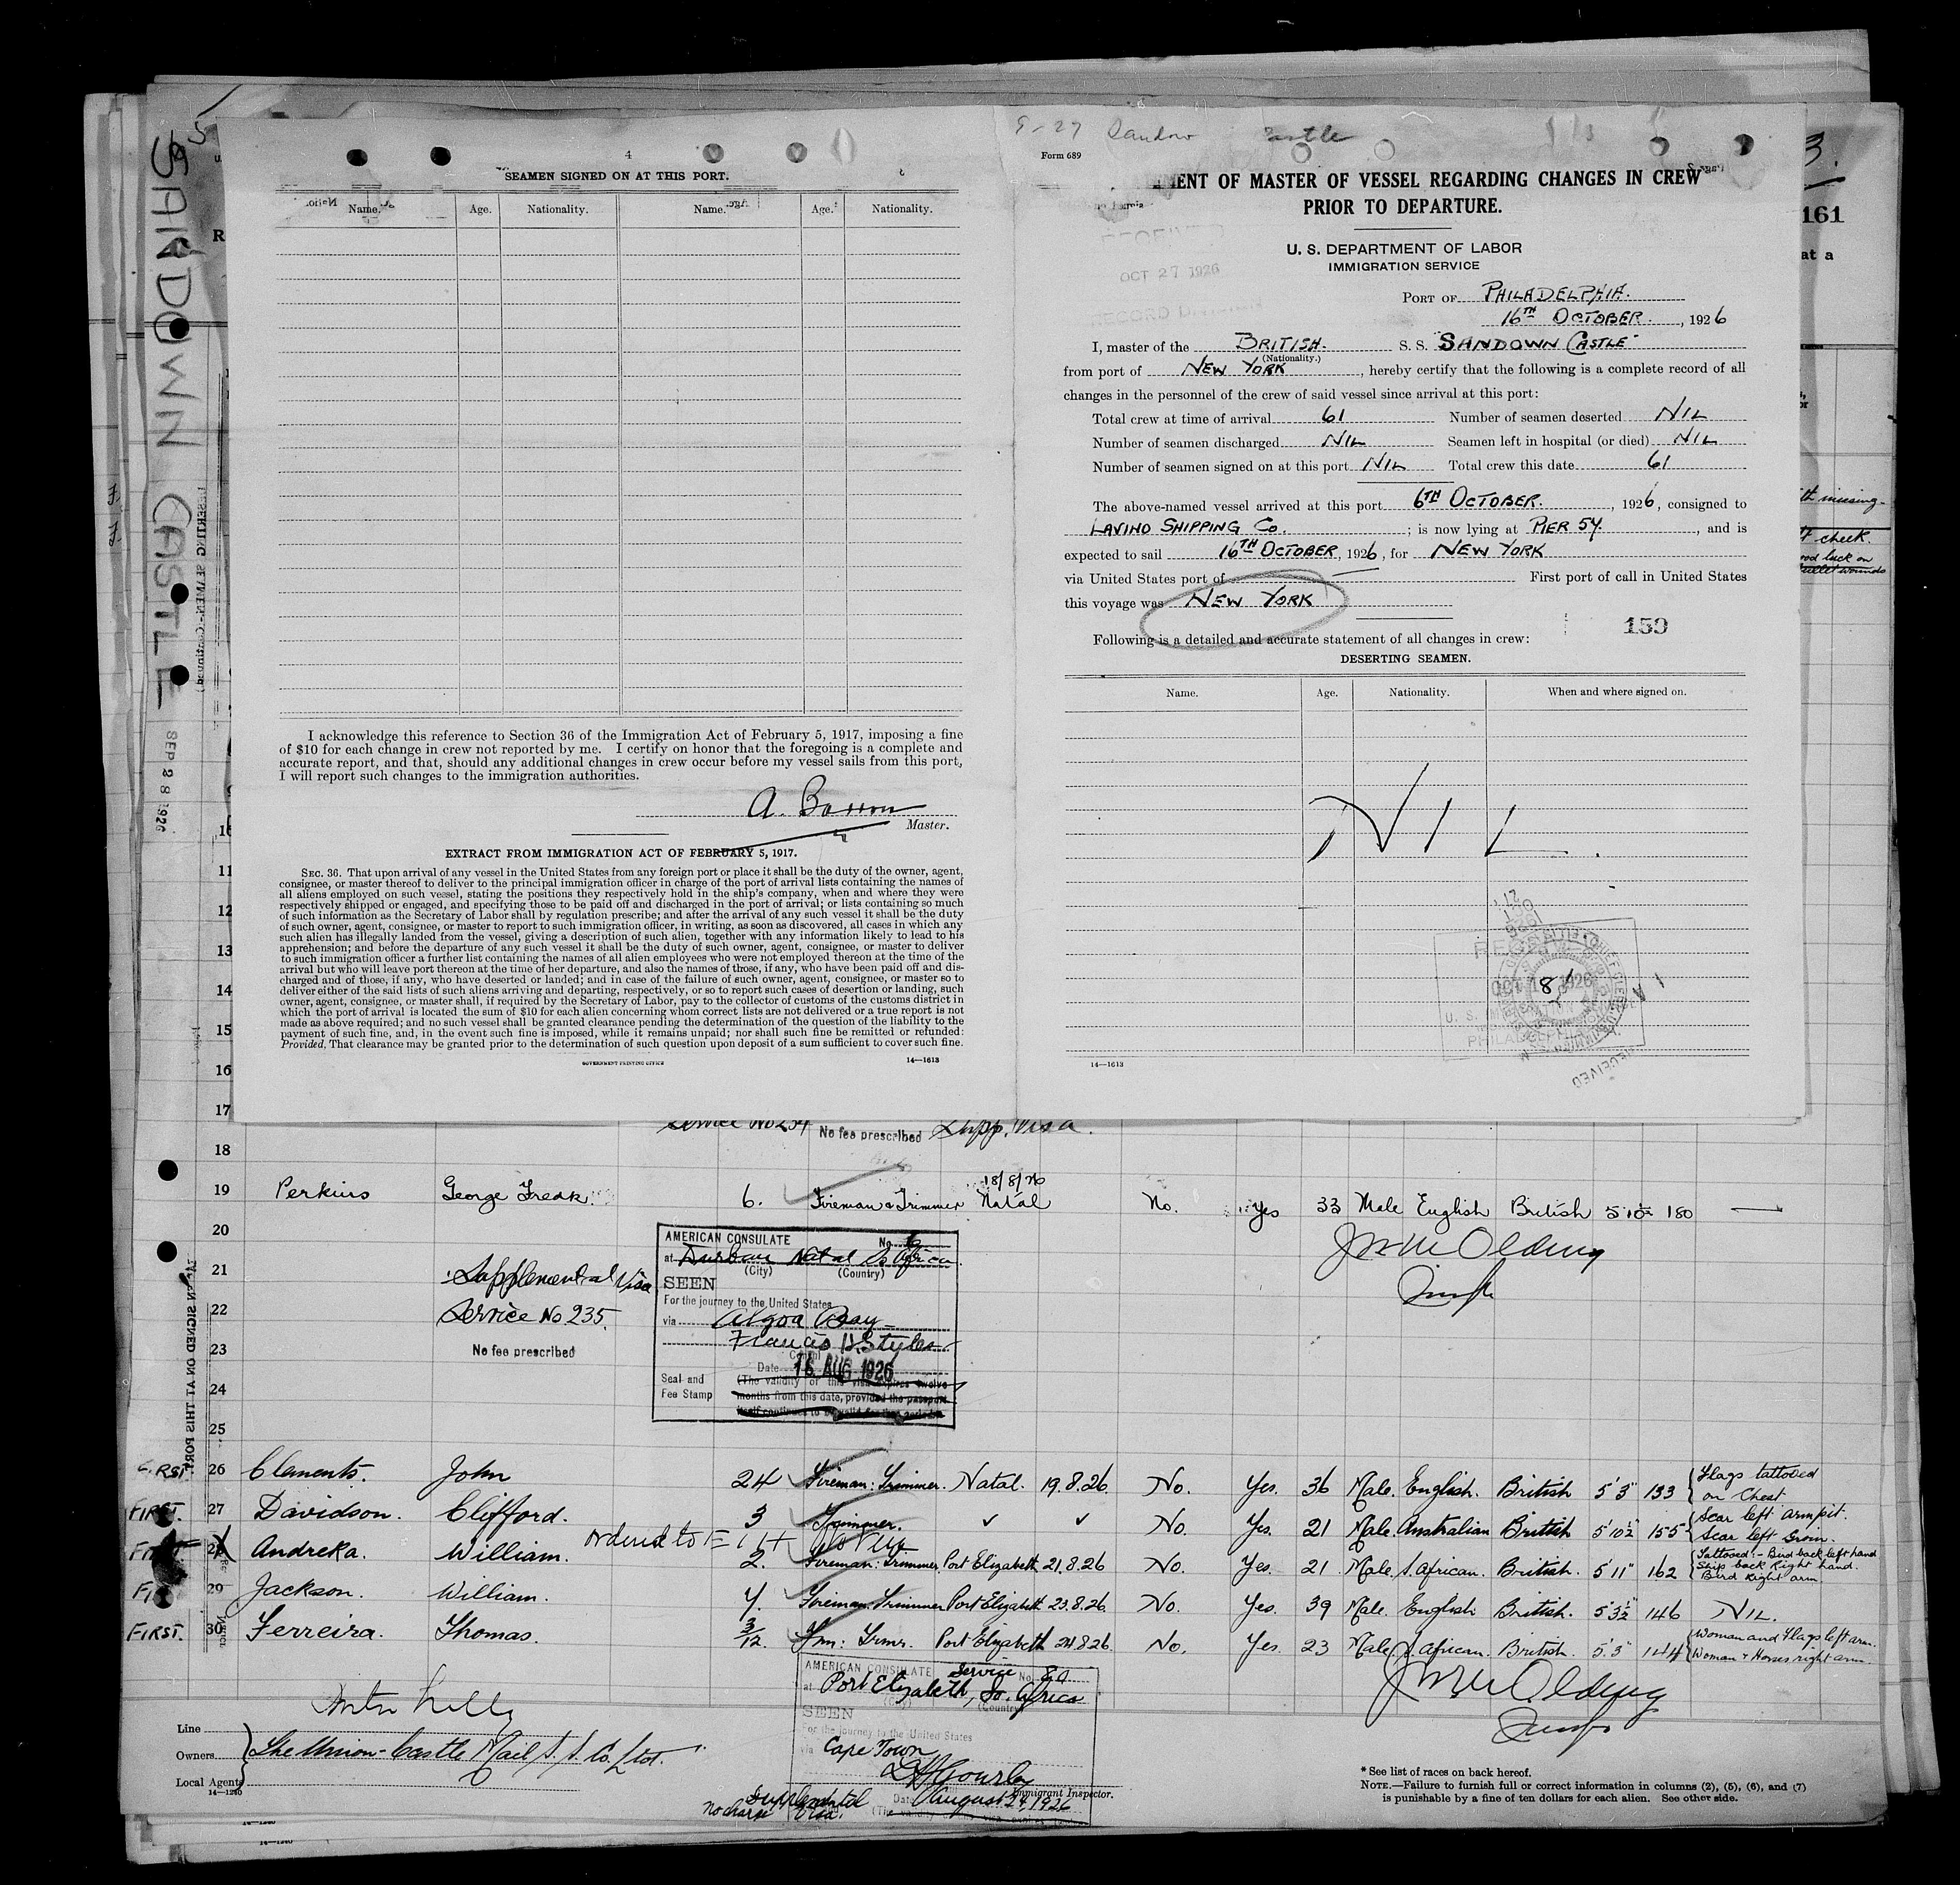 SANDOWN CASTLE
SEP 28 1926
4
SEAMEN SIGNED ON AT THIS PORT.
Name. Age. Nationality. Name. Age. Nationality.
I acknowledge this reference to Section 36 of the Immigration Act of February 5, 1917, imposing a fine
of $10 for each change in crew not reported by me. I certify on honor that the foregoing is a complete and
accurate report, and that, should any additional changes in crew occur before my vessel sails from this port,
I will report such changes to the immigration authorities.
Master.
EXTRACT FROM IMMIGRATION ACT OF FEBRUARY 5, 1917.
SEC. 36. That upon arrival of any vessel in the United States from any foreign port or place it shall be the duty of the owner, agent,
consignee, or master thereof to deliver to the principal immigration officer in charge of the port of arrival lists containing the names of
all aliens employed on such vessel, stating the positions they respectively hold in the ship's company, when and where they were
respectively shipped or engaged, and specifying those to be paid off and discharged in the port of arrival; or lists containing so much
of such information as the Secretary of Labor shall by regulation prescribe; and after the arrival of any such vessel it shall be the duty
of such owner, agent, consignee, or master to report to such immigration officer, in writing, as soon as discovered, all cases in which any
such alien has illegally landed from the vessel, giving a description of such alien, together with any information likely to lead to his
apprehension; and before the departure of any such vessel it shall be the duty of such owner, agent, consignee, or master to deliver
to such immigration officer a further list containing the names of all alien employees who were not employed thereon at the time of the
arrival but who will leave port thereon at the time of her departure, and also the names of those, if any, who have been paid off and dis-
charged and of those, if any, who have deserted or landed; and in case of the failure of such owner, agent, consignee, or master so to
deliver either of the said lists of such aliens arriving and departing, respectively, or so to report such cases of desertion or landing, such
owner, agent, consignee, or master shall, if required by the Secretary of Labor, pay to the collector of customs of the customs district in
which the port of arrival is located the sum of $10 for each alien concerning whom correct lists are not delivered or a true report is not
made as above required; and no such vessel shall be granted clearance pending the determination of the question of the liability to the
payment of such fine, and, in the event such fine is imposed, while it remains unpaid; nor shall such fine be remitted or refunded:
Provided, That clearance may be granted prior to the determination of such question upon deposit of a sum sufficient to cover such fine.
GOVERNMENT PRINTING OFFICE
14—1613
Form 689
MENT OF MASTER OF VESSEL REGARDING CHANGES IN CREW
PRIOR TO DEPARTURE.
U. S. DEPARTMENT OF LABOR
IMMIGRATION SERVICE
OCT 27 1926
PORT OF PHILADELPHIA.
16TH OCTOBER., 1926
I, master of the BRITISH. S. S. "SANDOWN CASTLE"
(Nationality.)
from port of NEW YORK, hereby certify that the following is a complete record of all
changes in the personnel of the crew of said vessel since arrival at this port:
Total crew at time of arrival 61 Number of seamen deserted NIL
Number of seamen discharged NIL Seamen left in hospital (or died) NIL
Number of seamen signed on at this port NIL Total crew this date 61
The above-named vessel arrived at this port 6TH OCTOBER., 1926, consigned to
LAVINO SHIPPING CO.; is now lying at PIER 54, and is
expected to sail 16TH OCTOBER, 1926, for NEW YORK
via United States port of First port of call in United States
this voyage was NEW YORK
159
Following is a detailed and accurate statement of all changes in crew:
DESERTING SEAMEN.
Name. Age. Nationality. When and where signed on.
NIL.
OCT 18 1926
RECEIVED
14—1613
3.
161
at a
11
12
13
14
15
16
17
No fee prescribed Supp. Visa.
18
19 Perkins George Fredk. 6. Fireman & Trimmer 18/8/26 Natal No. Yes 33 Male English British 5 10½ 180 —
20
21 Supplemental Visa
22 Service No 235.
23 No fee prescribed
24
25
AMERICAN CONSULATE No.
at Durban Natal So Africa.
(City) (Country)
SEEN
For the journey to the United States
via Algoa Bay
Francis H. Styles
Consul
Date 18 AUG 1926
Seal and Fee Stamp
(The validity of this visa expires twelve
months from this date, provided the passport
itself continues to be valid for that period.)
FIRST. 26 Clements. John 24 Fireman: Trimmer. Natal. 19.8.26 No. Yes. 36 Male. English. British 5'3" 133 Flags tattooed on Chest
FIRST. 27 Davidson. Clifford. 3 Trimmer. ✓ ✓ No. Yes. 21 Male. Australian British 5'10½" 155 Scar left armpit. Scar left Groin.
FIRST 28 Andreka. William. 2. Fireman: Trimmer Port Elizabeth 21.8.26 No. Yes. 21 Male. S. African. British. 5'11" 162 Tattooed:- Bird back left hand Ship back Right hand. Bird Right arm
29 Jackson. William. 4. Fireman Trimmer Port Elizabeth 23.8.26 No. Yes. 39 Male. English British. 5'3½" 146 NIL.
FIRST. 30 Ferreira. Thomas. 3/12. Fmn: Trmr. Port Elizabeth 24.8.26 No. Yes. 23 Male. S. African. British. 5'.3" 144 Woman and Flags left arm. Woman & Horses right arm.
AMERICAN CONSULATE Service No. 80
at Port Elizabeth, So. Africa
(Country)
SEEN
For the journey to the United States
via Cape Town
Date August 24, 1926
Immigrant Inspector.
Supplemental
No charge Visa.
Line
Owners The Union-Castle Mail S. S. Co. Ltd.
Local Agents
14—1240
* See list of races on back hereof.
NOTE.—Failure to furnish full or correct information in columns (2), (5), (6), and (7)
is punishable by a fine of ten dollars for each alien. See other side.